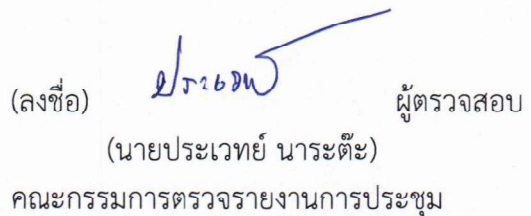 (ลงชื่อ) ประเวทย์ ผู้ตรวจสอบ
(นายประเวทย์ นาระต๊ะ)
คณะกรรมการตรวจรายงานการประชุม